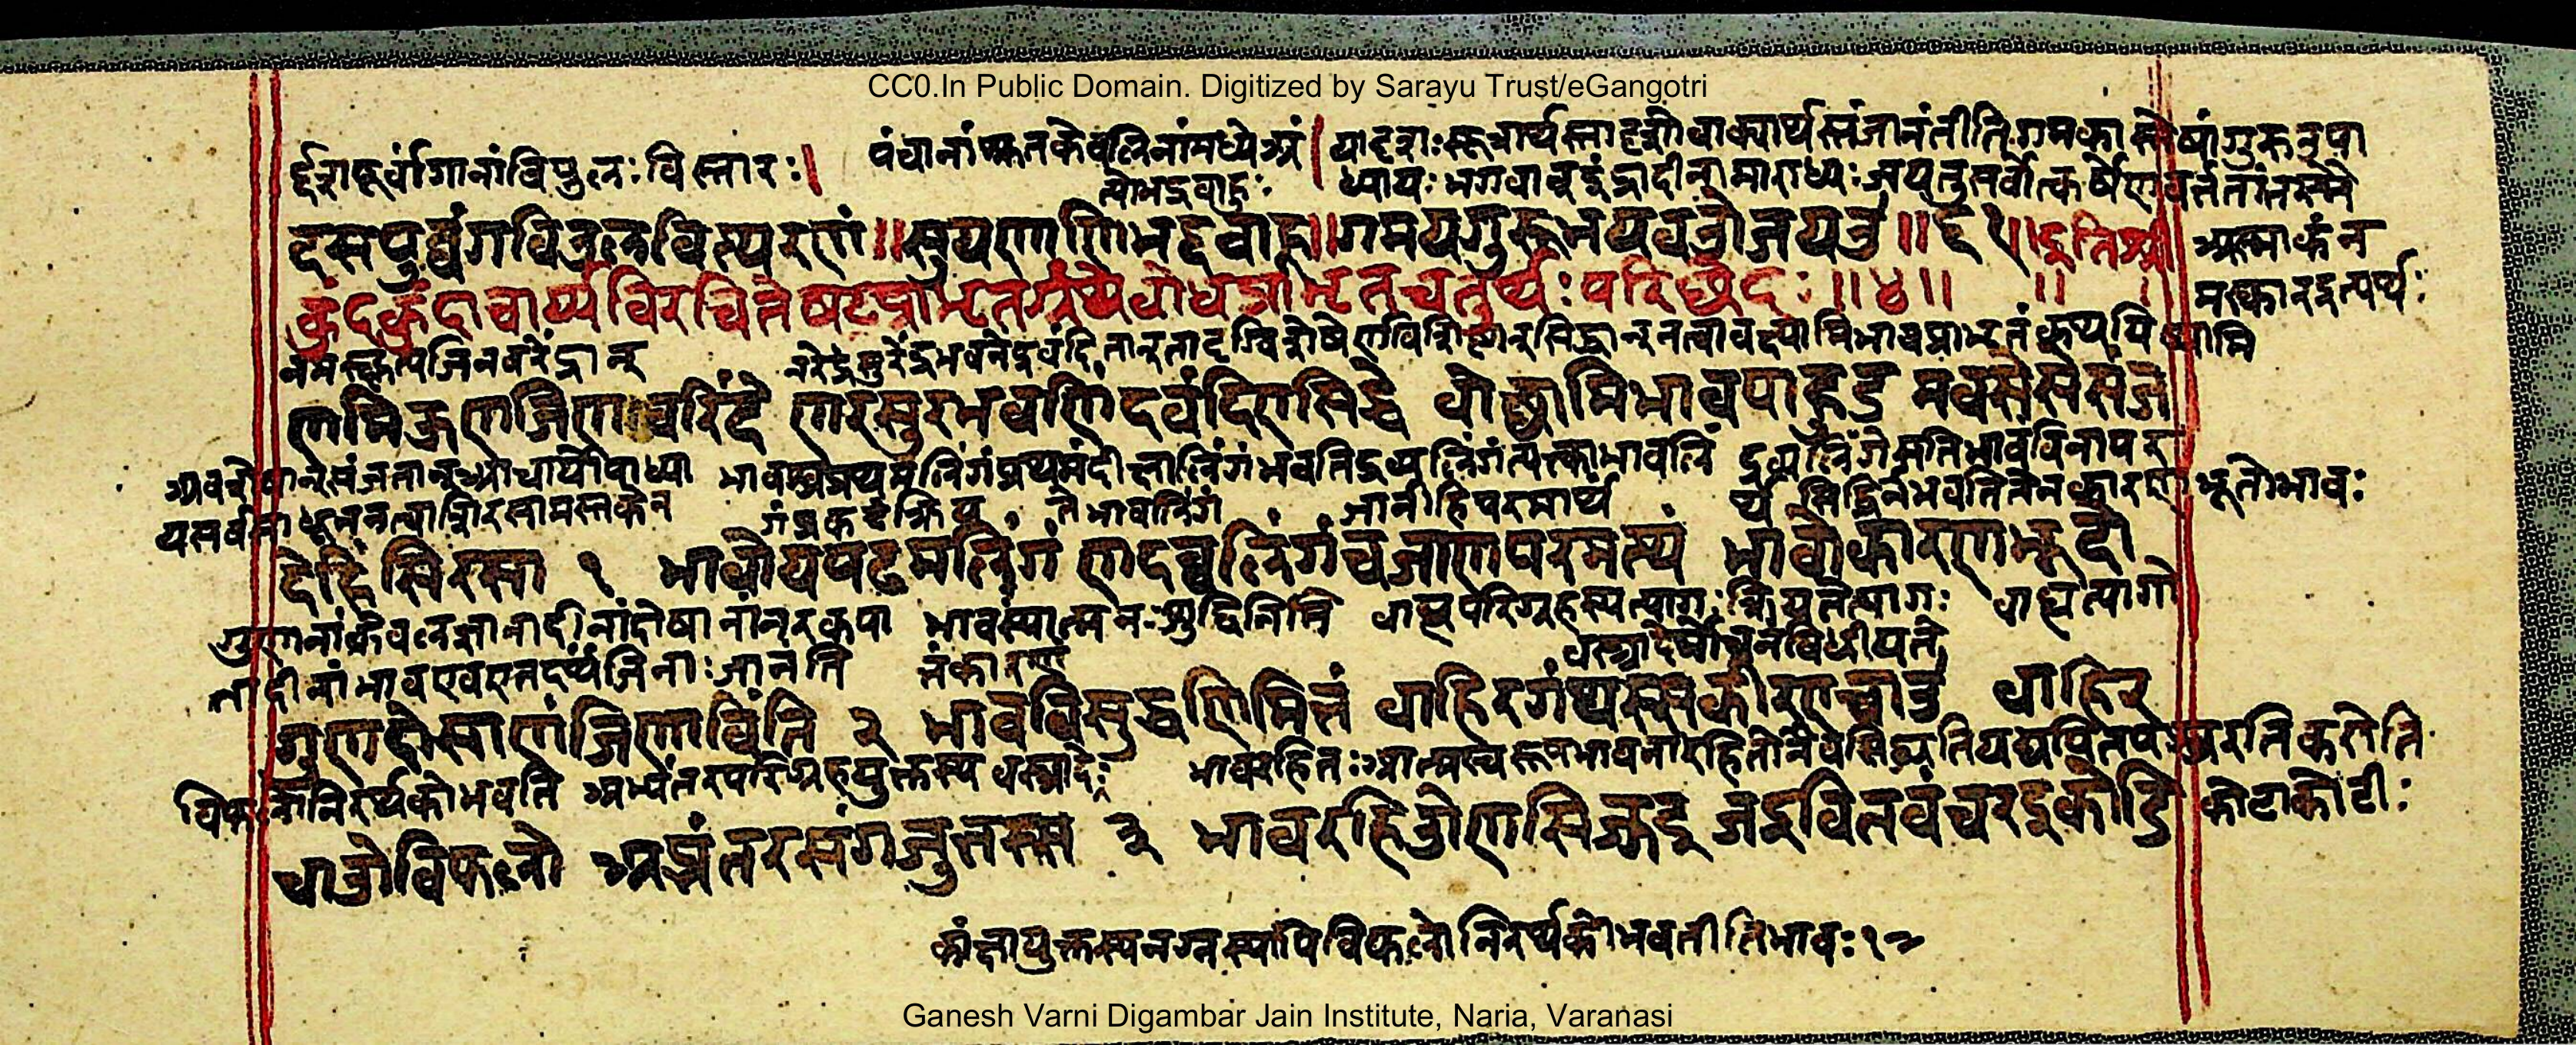 CC0.In Public Domain. Digitized by Sarayu Trust/eGangotri
र्द्दशपूर्वांगानांविपुलः विस्तारः। पंचानांश्रुतकेवलिनांमध्येअं। यादृशः सूत्रार्थस्तादृशोवाक्यार्थस्तंजानंतीतिगमकास्तेषांगुरुरुपा
त्योभद्रबाहुः ध्यायः भगवान् इंद्रादीनामाराध्यः जयतुसर्वोत्कर्षेणवर्ततांतस्मै
दसपुव्वंगविउलवित्थरणं॥ सुयणाणिभद्दबाहू॥ गमयगुरूभयवओजयउ॥६१॥ इतिश्री अस्माकंन
कुंदकुंदाचार्यविरचितेषटप्राभृतग्रंथेबोधप्राभृतचतुर्थः परिछेदः॥४॥ मस्कारइत्यर्थः
नमस्कृत्यजिनवरेंद्रान् नरेंद्रसुरेंद्रभवनेंद्रवंदितान् सिद्धान्नत्वावक्ष्यामिभावप्राभृतंकथयिष्यामि
णमिऊणजिणवरिंदे णरसुरभवणिंदवंदिएसिद्धे वोछामिभावपाहुड मवसेसेसंज
अवशेषान्संजतान्आचार्योपाध्या भावस्यप्रथमलिंगंप्रथमंदीक्षालिंगंभवतिद्रव्यलिंगंत्यक्त्वाभावलिं द्रव्यलिंगेसतिभावंविनापर
यसर्वसाधून्नत्वाशिरसामस्तकेन गंप्रकटंक्रिय ते भावलिंगं जानीहिपरमार्थं र्थ सिद्धिर्नभवतितेनकारण भूतोभावः
देहिंसिरसा १ भावोयपढमलिंगं णदव्वलिंगंचजाणपरमत्थं भावोकारणभूदो
गुणानांकेवलज्ञानादीनांदोषानांनरकपा भावस्यात्मनः शुद्धिनिमि बाह्यपरिग्रहस्यत्यागः क्रियतेत्यागः बाह्यत्यागो
तादीनांभावएवएतदर्थंजिनाः जानंति तंकारण वस्त्रादेर्मोचनंविधीयते
गुणदोसाणंजिणाविंति २ भावविसुद्धणिमित्तं बाहिरगंथस्सकीरएचाउ बाहिर
विफलोनिरर्थकोभवति अभ्यंतरपरिग्रहयुक्तस्य वस्त्रादेः भावरहितः आत्मस्वरूपभावनारहितोनैवसिद्ध्यतियद्यपितपश्चरतिकरोति
चाओविफलो अब्भंतरसंगजुत्तस्स ३ भावरहिओणसिज्झइ जइवितवंचरइकोडि कोटाकोटीः
कांक्षायुक्तस्यनग्नस्यापिविफलोनिरर्थकोभवतीतिभावः १३
Ganesh Varni Digambar Jain Institute, Naria, Varanasi